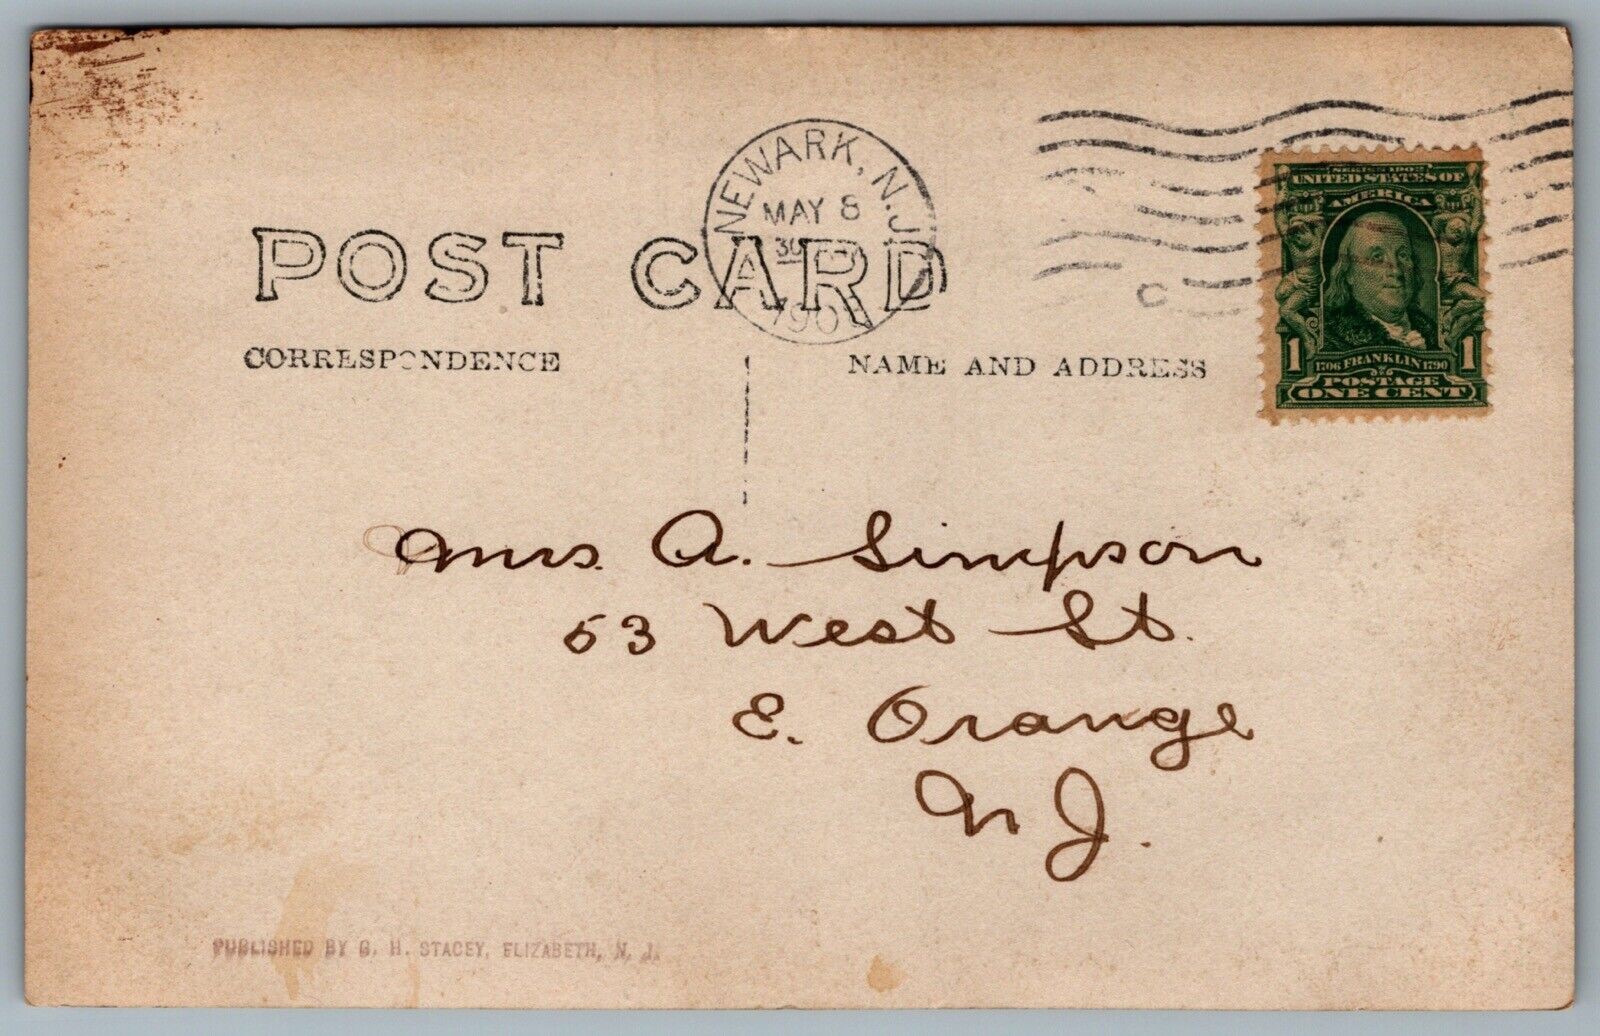 NEWARK, N.J.
MAY 8
30
190
C
SERIES 1902
UNITED STATES OF
AMERICA
1 1706 FRANKLIN 1790 1
POSTAGE
ONE CENT
POST CARD
CORRESPONDENCE
NAME AND ADDRESS
Mrs. A. Simpson
53 West St.
E. Orange
N J.
PUBLISHED BY G. H. STACEY, ELIZABETH, N. J.